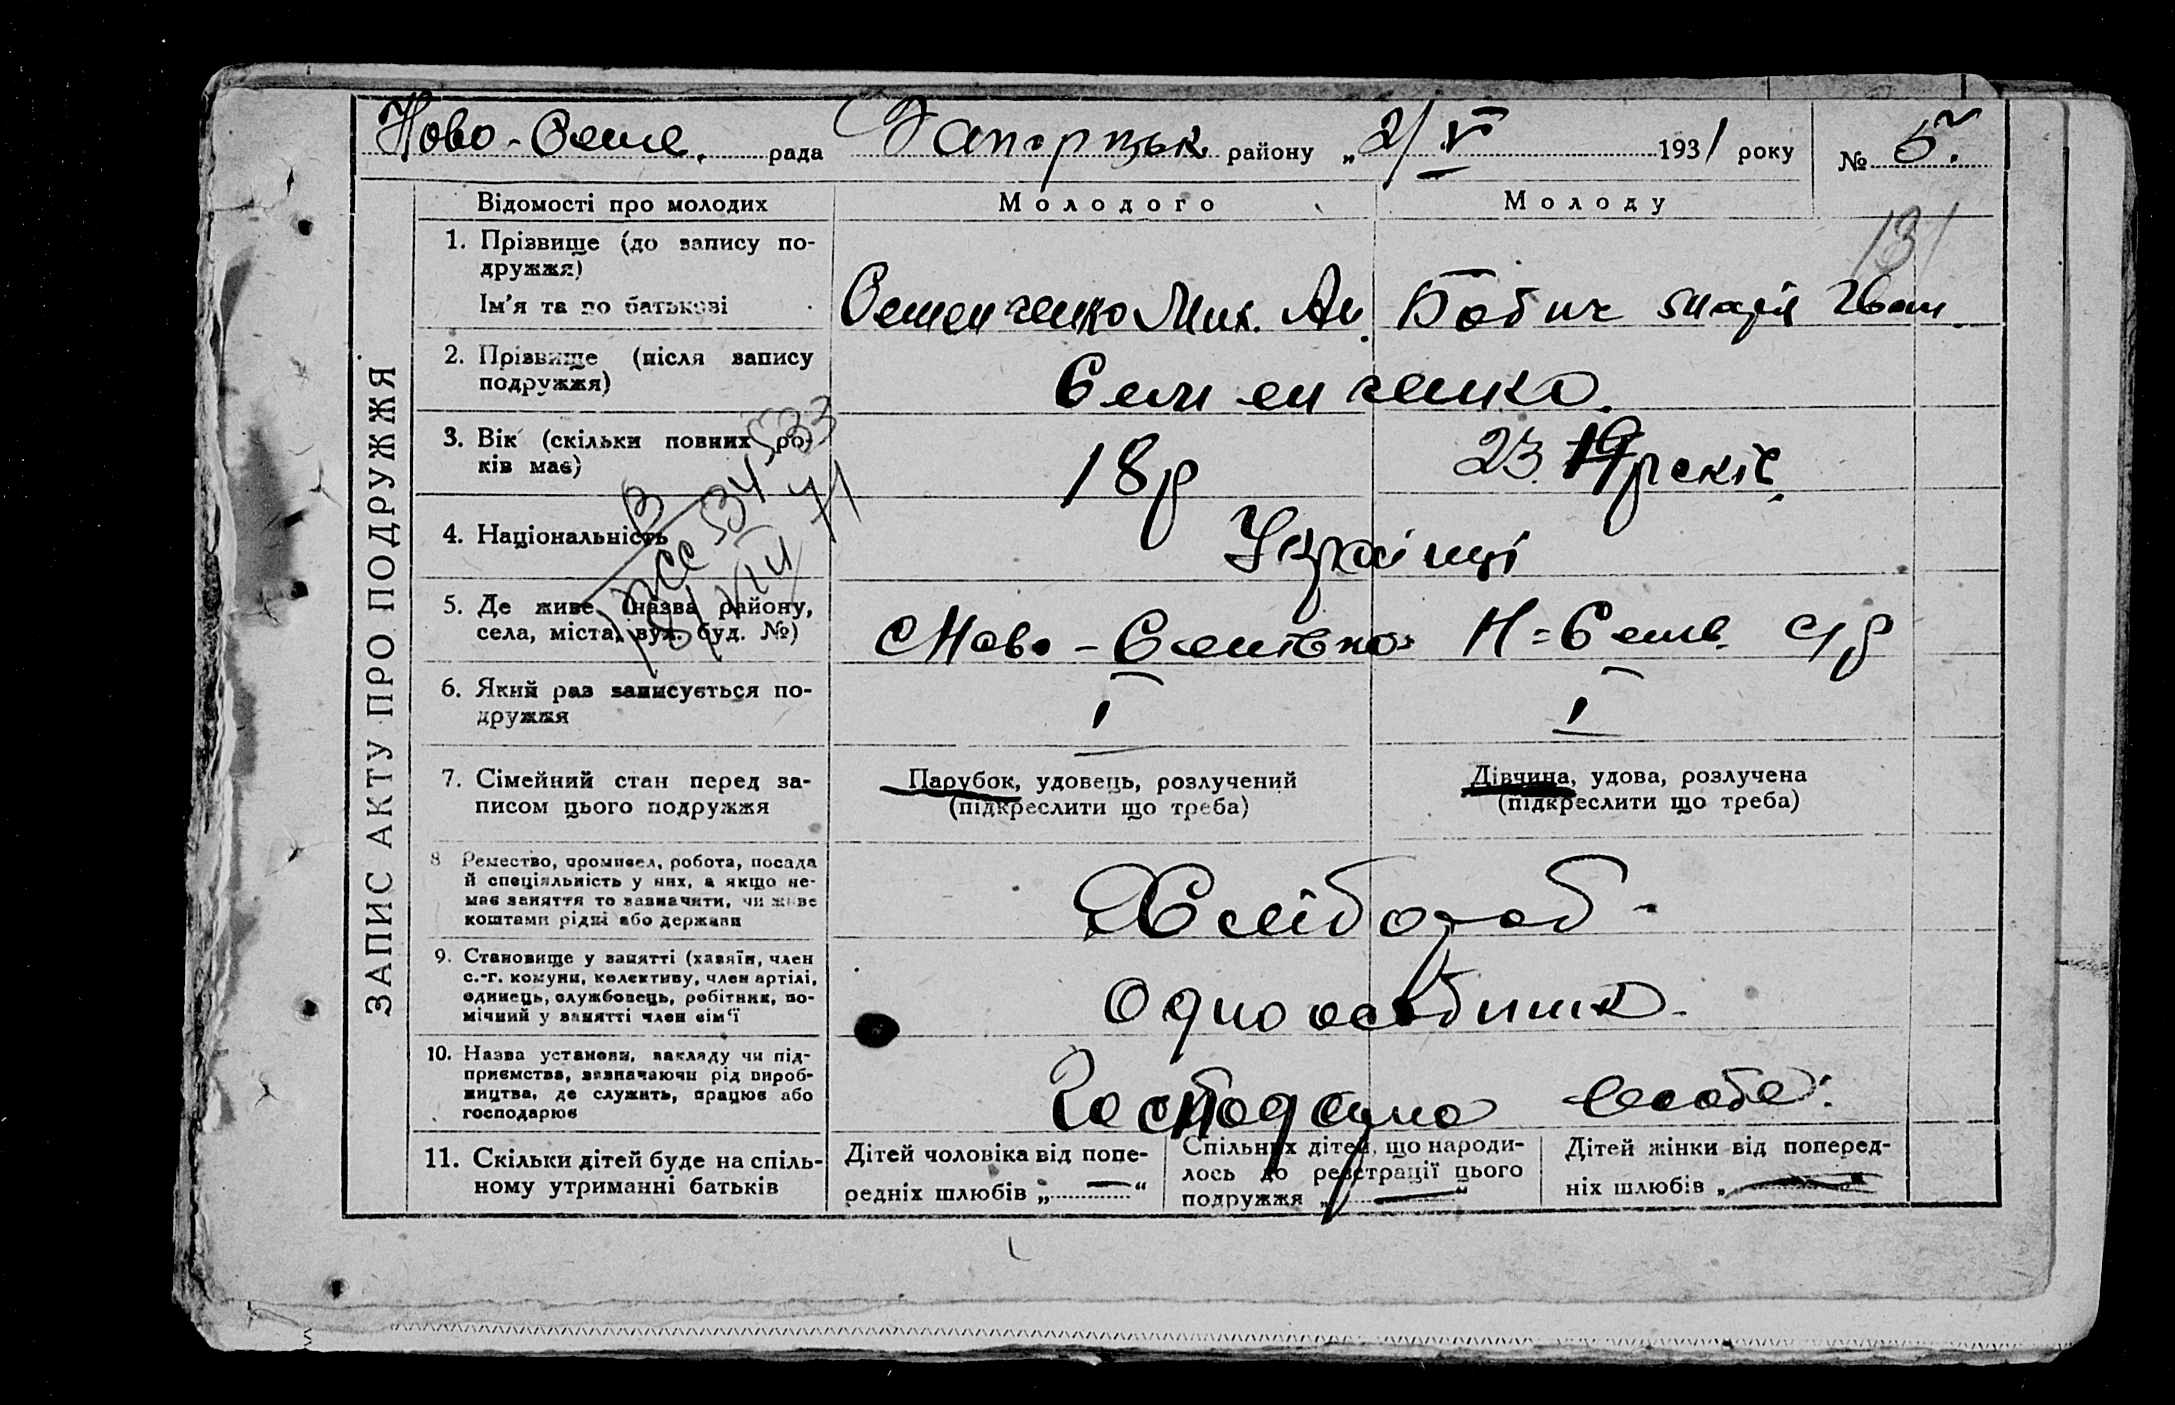 Ново-Семе. рада Запорізьк району „2/VI 1931 року № 5.
Відомості про молодих Молодого Молоду
131
1. Прізвище (до запису по-
дружжя)
Ім'я та по батькові Семенченко Мих. Ан. Бабич Марія Іван.
2. Прізвище (після запису
подружжя) Семенченко.
3. Вік (скільки повних ро-
ків має) 18р 23. 19 років.
4. Національність Українці
5. Де живе (назва району,
села, міста, вул. буд. №) Ново-Семенівка Н=Семів. с/р
6. Який раз записується по-
дружжя I I
7. Сімейний стан перед за-
писом цього подружжя
Парубок, удовець, розлучений
(підкреслити що треба)
Дівчина, удова, розлучена
(підкреслити що треба)
8 Ремество, промисел, робота, посада
й спеціяльність у них, а якщо не-
має заняття то зазначити, чи живе
коштами рідні або держави
Хлібороб-
9. Становище у занятті (хазяїн, член
с.-г. комуни, колективу, член артілі,
одинець, службовець, робітник, по-
мічний у занятті член сім'ї
Одноосібник.
10. Назва установи, закладу чи під-
приємства, зазначаючи рід вироб-
ництва, де служить, працює або
господарює
11. Скільки дітей буде на спіль-
ному утриманні батьків
Дітей чоловіка від попе-
редніх шлюбів „—“
Спільних дітей, що народи-
лось до реєстрації цього
подружжя „—“
Дітей жінки від поперед-
ніх шлюбів „—“
ЗАПИС АКТУ ПРО ПОДРУЖЖЯ